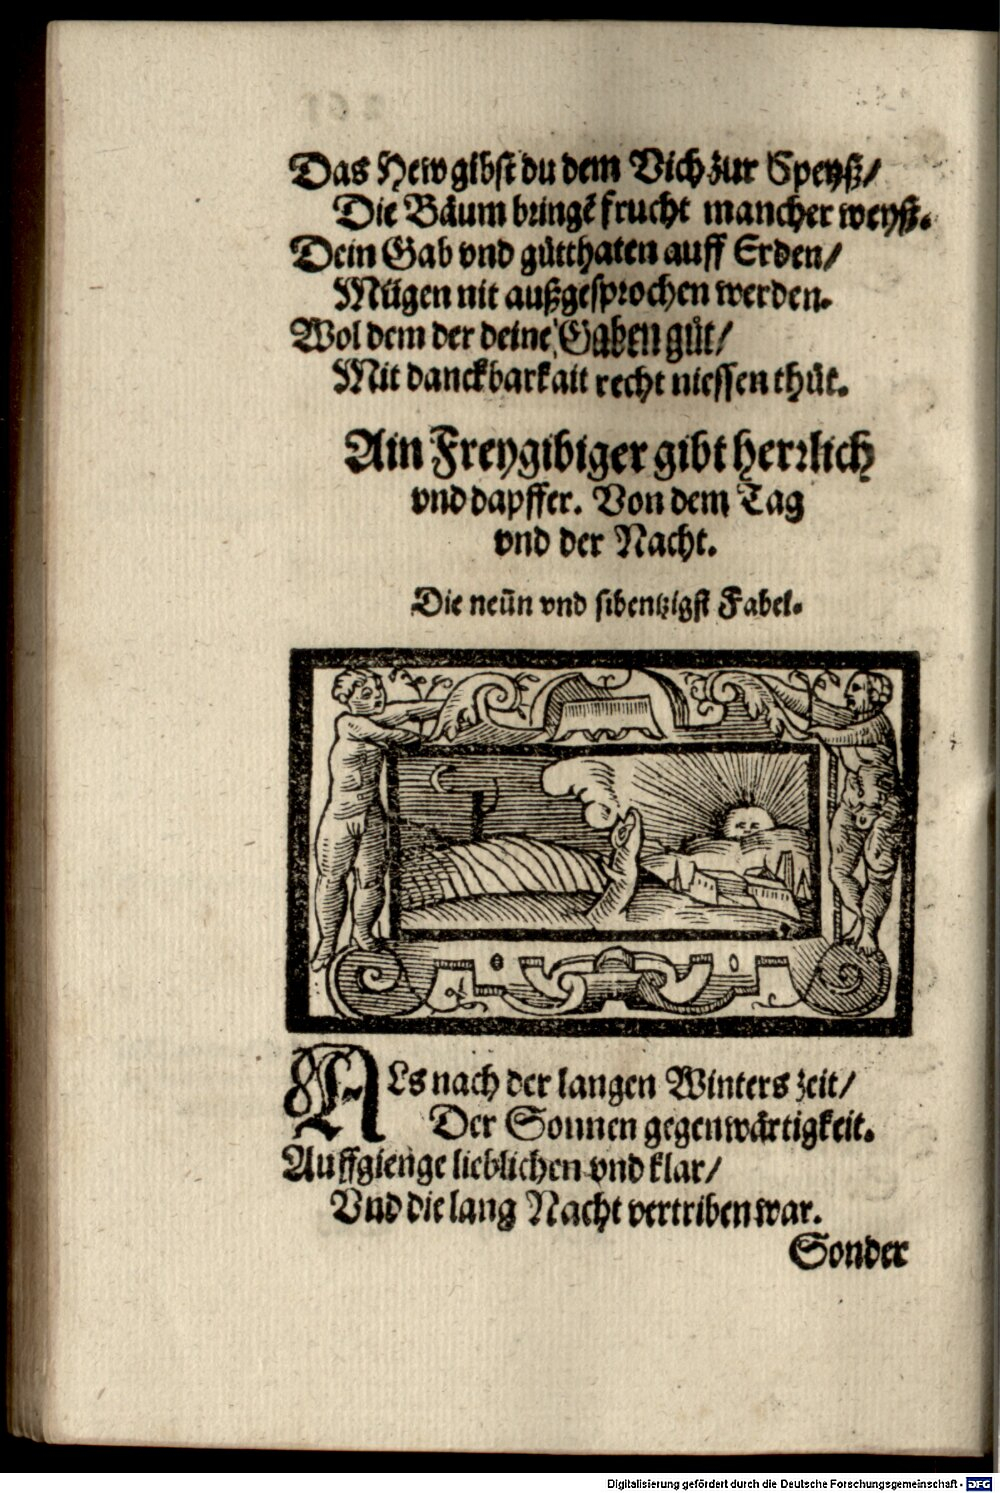 Das Hew gibst du dem Vich zur Speyß/
Die Bäum bringẽ frucht mancher weyß.
Dein Gab vnd gůtthaten auff Erden/
Mügen nit außgesprochen werden.
Wol dem der deine Gaben gůt/
Mit danckbarkait recht niessen thůt.
Ain Freygibiger gibt herrlich
vnd dapffer. Von dem Tag
vnd der Nacht.
Die neün vnd sibentzigst Fabel.
ALs nach der langen Winters zeit/
Der Sonnen gegenwärtigkeit.
Auffgienge lieblichen vnd klar/
Vnd die lang Nacht vertriben war.
Sonder
Digitalisierung gefördert durch die Deutsche Forschungsgemeinschaft - DFG